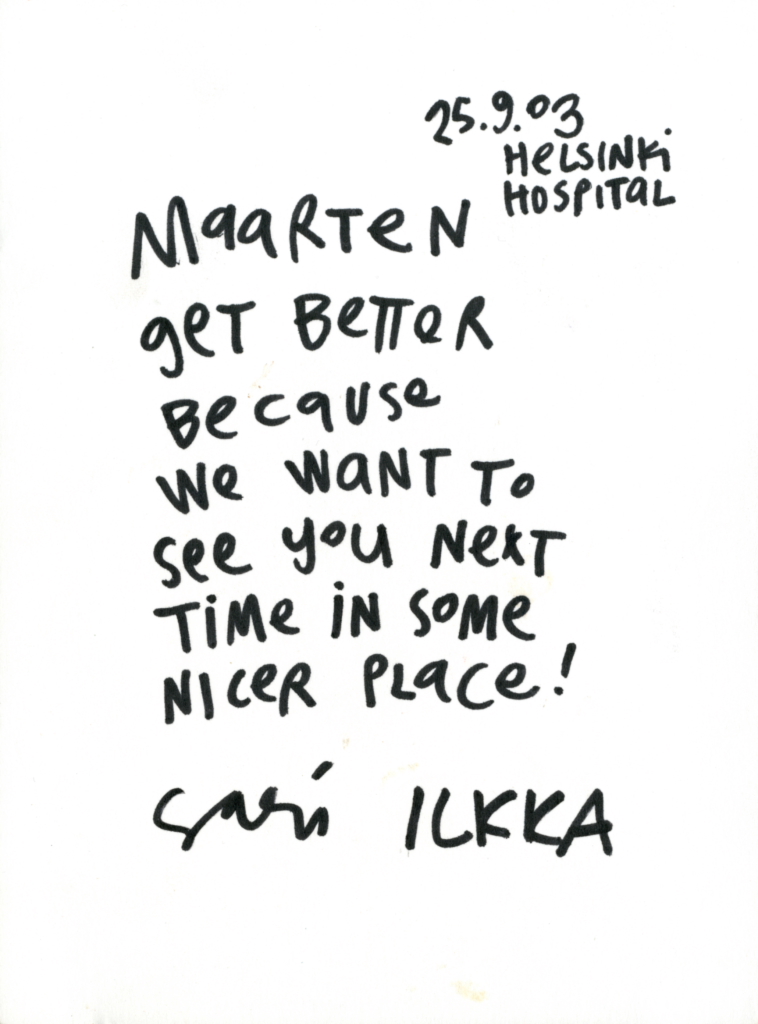 25.9.03
HELSINKi
HOSPITAL
MaaRTeN
geT BeTTeR
Because
we waNT To
see you NexT
TiMe iN SOMe
NICeR PLace!
Sari ILKKA